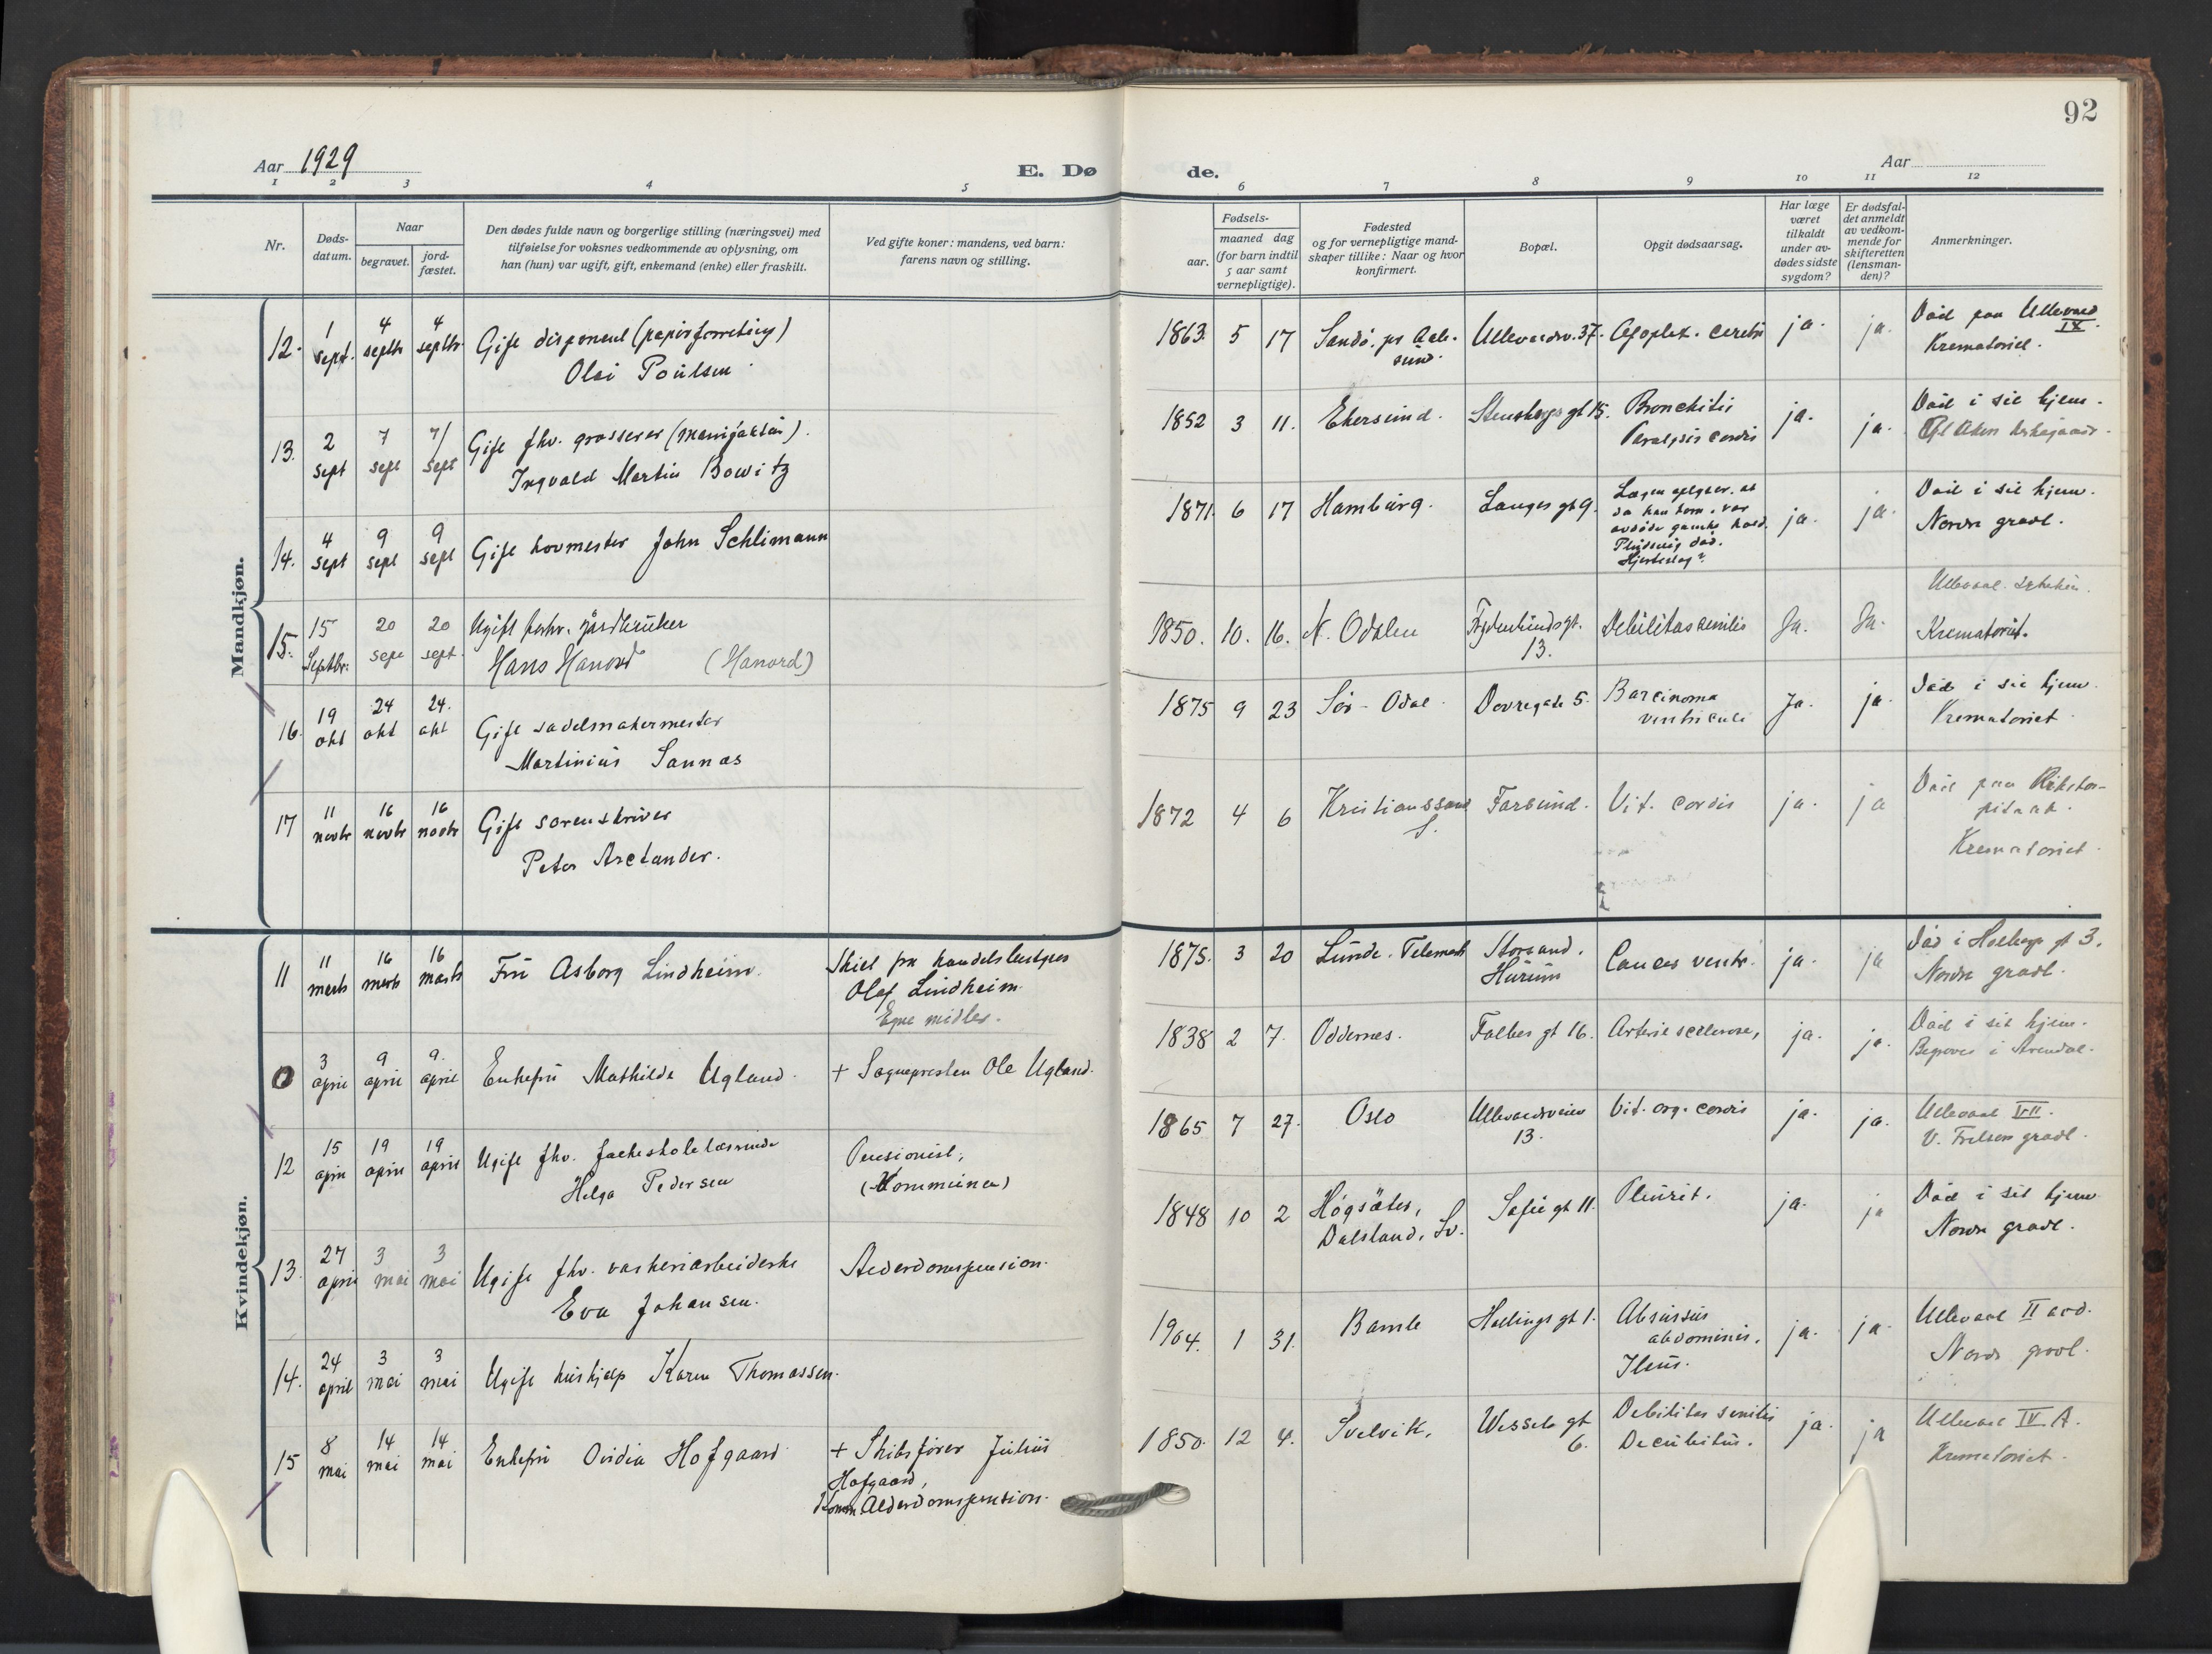 92
Aar 1929
E. Dø
de.
Aar
1 2 3 4 5
6 7 8 9 10 11 12
Nr.
Døds-
datum.
Naar
begravet.
jord-
fæstet.
Den dødes fulde navn og borgerlige stilling (næringsvei) med
tilføielse for voksnes vedkommende av oplysning, om
han (hun) var ugift, gift, enkemand (enke) eller fraskilt.
Ved gifte koner: mandens, ved barn:
farens navn og stilling.
Fødsels-
aar.
maaned dag
(for barn indtil
5 aar samt
vernepligtige).
Fødested
og for vernepligtige mand-
skaper tillike: Naar og hvor
konfirmert.
Bopæl.
Opgit dødsaarsag.
Har læge
været
tilkaldt
under av-
dødes sidste
sygdom?
Er dødsfal-
det anmeldt
av vedkom-
mende for
skifteretten
(lensman-
den)?
Anmerkninger.
Mandkjøn.
12. 1 sept. 4 septbr 4 septbr. Gift disponent (papirforretning)
Olai Poulsen
1863. 5 17 Sandö, pr Aale-
sund.
Ullevaalsv. 37. Apoplex. cerebri ja. ja. Död paa Ullevaal
IX.
Krematoriet.
13. 2 sept 7 sept 7/ sept Gift fhv. grosserer (manufaktur).
Ingvald Martin Bowitz
1852 3 11. Ekersund. Stensbergs gt 15. Bronchitis
Paralysis cordis
ja. ja. Död i sit hjem.
Gl Akers kirkegaard.
14. 4 sept 9 sept 9 sept Gift hovmester John Schlimann
1871. 6 17 Hamburg. Langes gt 9.
Lægen oplyser, at
da han kom, var
avdöde ganske kold.
Pludselig död.
Hjerteslag?
ja. ja. Död i sit hjem.
Nordre gravl.
15. 15 Septbr. 20 sept 20 sept. Ugift forhv. gårdbruker
Hans Hanord (Hanord)
1850. 10. 16. N. Odalen Frydenlundsgt.
13.
Debilitas senilis Ja. Ja. Ullevaal
Krematoriet.
16. 19 okt 24 okt 24. okt Gift sadelmakermester
Martinius Sannes
1875 9 23 Sör-Odal Dovregate 5. Barcinoma
ventriculi
Ja. ja. Död i sit hjem
Krematoriet
17 11 novbr 16 novbr 16 novbr Gift sorenskriver
Peter Arctander.
1872 4 6 Kristianssand
S.
Farsund. Vit. cordis ja. ja Död paa Rikshos-
pitalet.
Krematoriet.
Kvindekjøn.
11 11 marts 16 marts 16 marts Fru Asborg Lindheim.
Skilt fra handelsbestyrer
Olaf Lindheim
Egne midler.
1875. 3 20 Lunde. Telemark Storsand.
Hurum
Cancer ventr. ja. ja Död i Holbergs gt 3.
Nordre gravl.
0 3 april 9 april 9. april Enkefru Mathilde Ugland. + Sognepresten Ole Ugland.
1838 2 7. Oddernes. Falbes gt 16. Arterie sclerose, ja. ja. Död i sit hjem.
Begraves i Arendal.
12 15 april 19 april 19 april Ugift fhv. folkeskolelærerinde
Helga Pedersen
Pensionist,
(Kommunen)
1865 7 27. Oslo Ullevaalsveien
13.
Vit. org. cordis ja. ja. Ullevaal VII.
V. Frelsers gravl.
13. 27 april 3 mai 3 mai Ugift fhv. vaskeriarbeiderske
Eva Johansen.
Alderdomspension.
1848 10 2 Högsäter,
Dalsland, Sv.
Sofie gt 11. Pleurit. ja. ja Död i sit hjem
Nordre gravl.
14. 24 april 3 mai 3 mai Ugift hushjelp Karen Thomassen.
1904. 1 31. Bamle Hallings gt 1. Absessus
abdominis.
Ileus.
ja. ja. Ullevaal II avd.
Nordre gravl.
15 8 mai 14 mai 14 mai Enkefru Ovidia Hofgaard + Skibsförer Julius
Hofgaard,
Komm. Alderdomspension.
1850. 12 4. Svelvik. Wessels gt
6.
Debilitas senilis
Decubitus.
ja. ja Ullevaal IV. A.
Krematoriet.